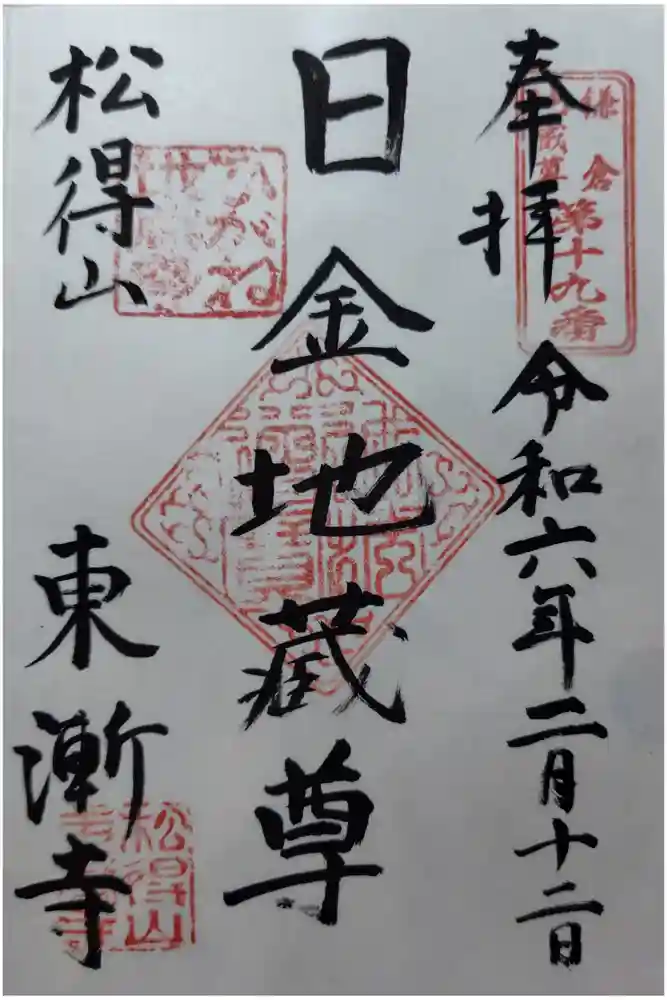 奉拝
令和六年二月十二日
鎌倉
地蔵尊
第十九番
日金地蔵尊
松得山
東漸寺
松得山